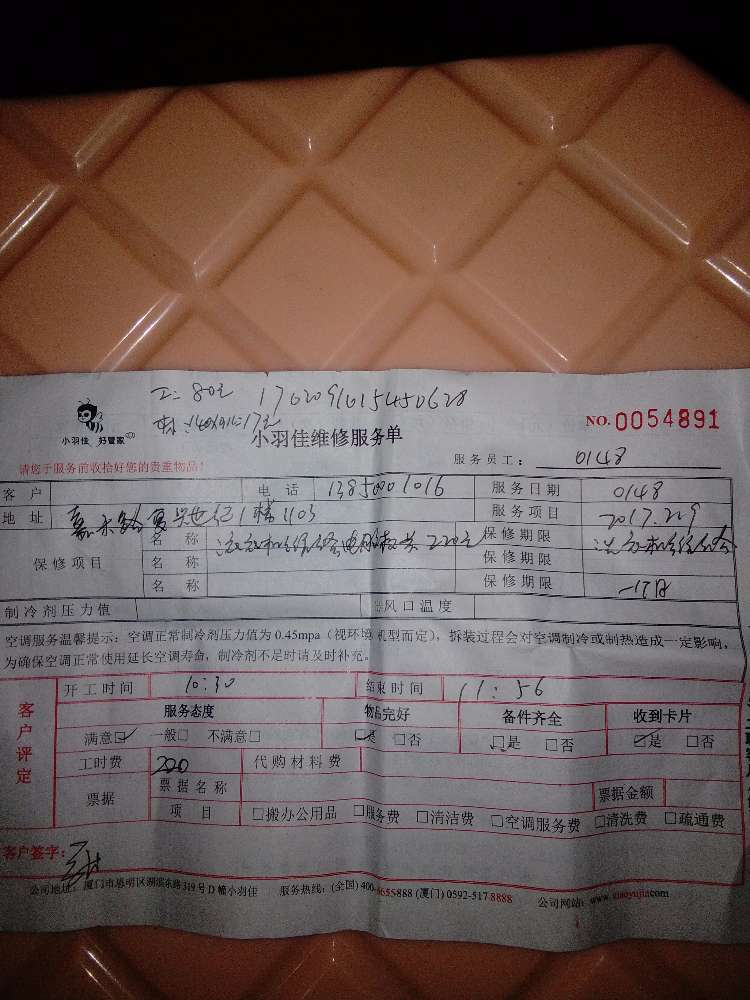 工: 80元 1702091015450628
小羽佳 好管家
小羽佳维修服务单
NO. 0054891
请您于服务前收拾好您的贵重物品!
服务员工: 0148
客户 电话 服务日期 0148
地址 1栋1103 服务项目 2017.2.9
保修项目
名称 220元 保修期限
名称 保修期限
名称 保修期限
制冷剂压力值 风口温度
空调服务温馨提示：空调正常制冷剂压力值为 0.45mpa（视环境机型而定），拆装过程会对空调制冷或制热造成一定影响，
为确保空调正常使用延长空调寿命，制冷剂不足时请及时补充。
客户评定
开工时间 10:30 结束时间 11:56
服务态度 物品完好 备件齐全 收到卡片
满意☑ 一般□ 不满意□ ☑是 □否 ☑是 □否 ☑是 □否
工时费 220 代购材料费
票据 票据名称 票据金额
项目 □搬办公用品 □服务费 □清洁费 □空调服务费 □清洗费 □疏通费
客户签字:
公司地址：厦门市思明区湖滨东路319号D幢小羽佳 服务热线：(全国) 400-8655888 (厦门) 0592-517 8888 公司网站：www.xiaoyujia.com